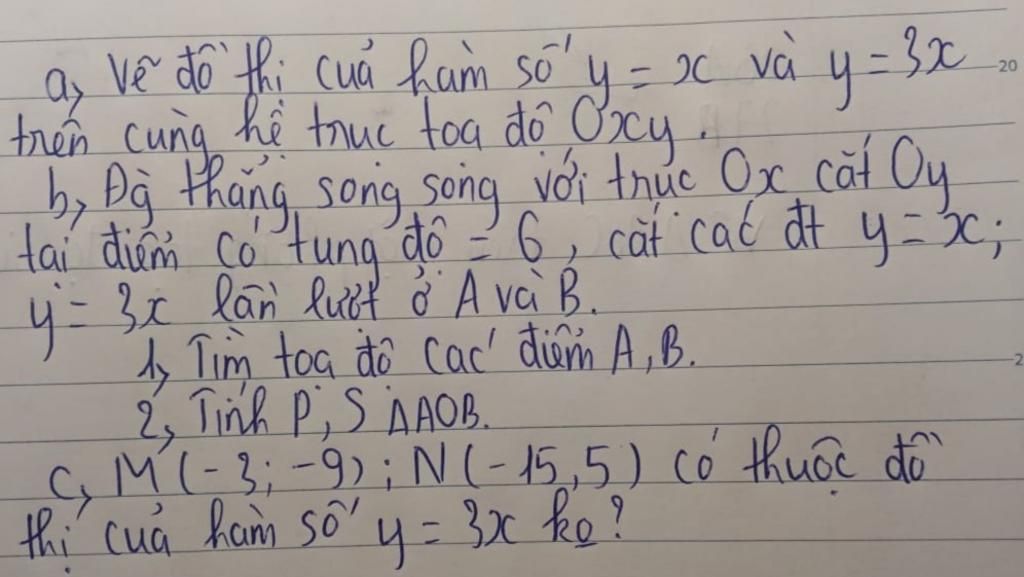 a, Vẽ đồ thị của hàm số y = x và y = 3x
trên cùng hệ trục toạ độ Oxy.
b, Đg thẳng song song với trục Ox cắt Oy
tại điểm có tung độ = 6, cắt các đt y = x;
y = 3x lần lượt ở A và B.
1, Tìm toạ độ các điểm A, B.
2, Tính P, S ΔAOB.
c, M (-3; -9); N (-15, 5) có thuộc đồ
thị của hàm số y = 3x ko?
20
2